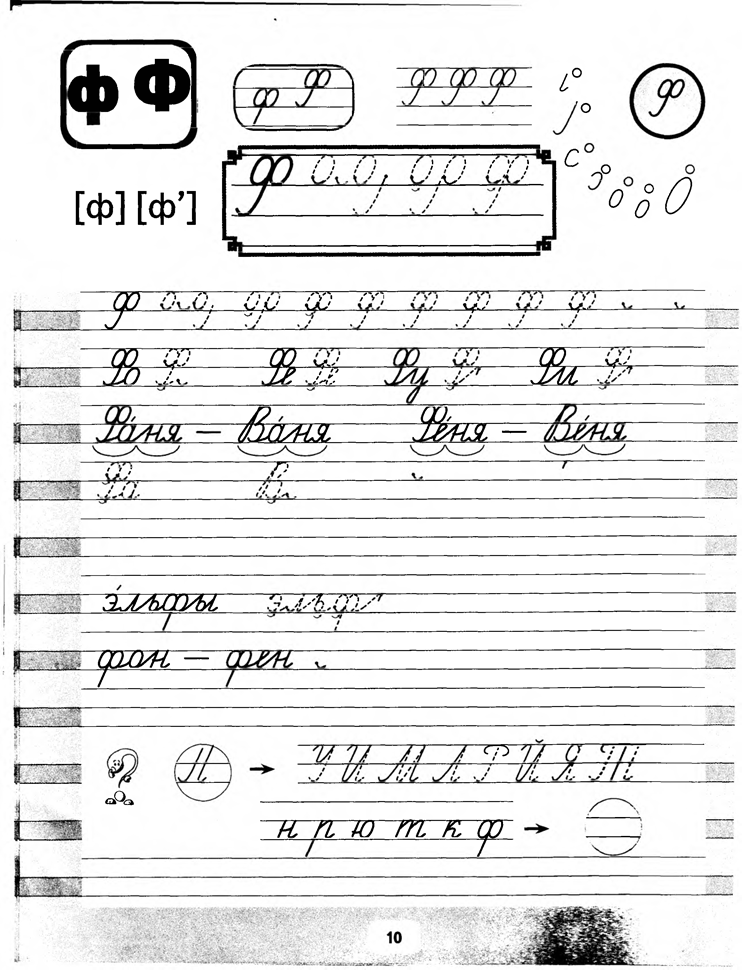 ф Ф ф Ф Ф Ф Ф Ф
[ф] [ф’]
Ф Ф
Ф Ф Ф Ф Ф Ф Ф
Фо Ф Фе Фе Фу Ф Фи Ф
Фа́ня — Ва́ня Фе́ня — Ве́ня
Фа В
э́льфы эльф
фон — фен
→ У И М Л Р Й Я Т
н р ю т к ф →
10